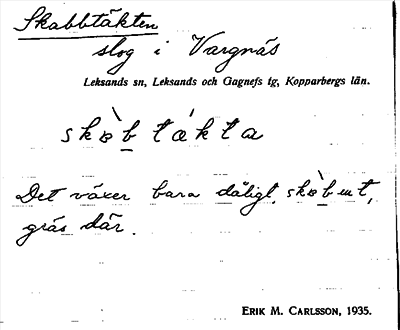 Skabbtäkten
slog i Vargnäs
Leksands sn, Leksands och Gagnefs tg, Kopparbergs län.
skòb tákta
Det växer bara dåligt, skòbut,
gräs där.
ERIK M. CARLSSON, 1935.